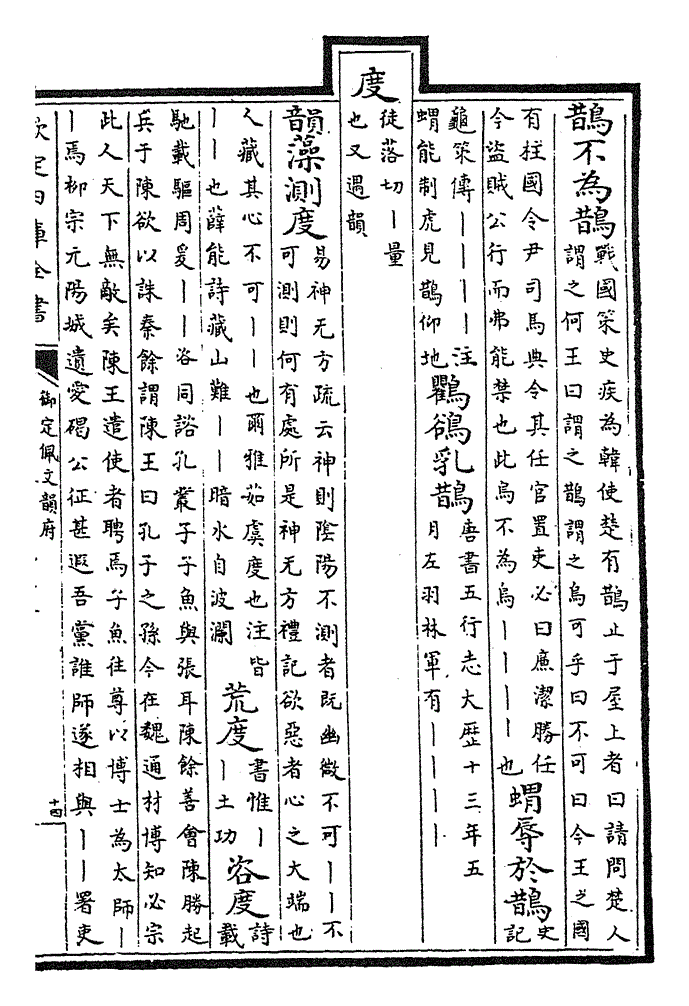 鵲不為鵲
戰國策史疾為韓使楚有鵲止于屋上者曰請問楚人
謂之何王曰謂之鵲謂之烏可乎曰不可曰今王之國
有柱國令尹司馬典令其任官置吏必曰廉潔勝任
今盜賊公行而弗能禁也此烏不為烏丨丨丨丨也
蝟辱於鵲
史
記
龜策傳丨丨丨丨注
蝟能制虎見鵲仰地
鸜鵒乳鵲
唐書五行志大歷十三年五
月左羽林軍有丨丨丨丨
度
徒落切丨量
也又遇韻
韻藻測度
易神无方疏云神則陰陽不測者既幽微不可丨丨不
可測則何有處所是神无方禮記欲惡者心之大端也
人藏其心不可丨丨也爾雅茹虞度也注皆
丨丨也薛能詩藏山難丨丨暗水自波瀾
荒度
書惟丨
丨土功
咨度
詩
載
馳載驅周爰丨丨咨同諮孔叢子子魚與張耳陳餘善會陳勝起
兵于陳欲以誅秦餘謂陳王曰孔子之孫今在魏通材博知必宗
此人天下無敵矣陳王遣使者聘焉子魚往尊以博士為太師丨
丨焉柳宗元陽城遺愛碣公征甚遐吾黨誰師遂相與丨丨署吏
欽定四庫全書
御定佩文韻府
十四